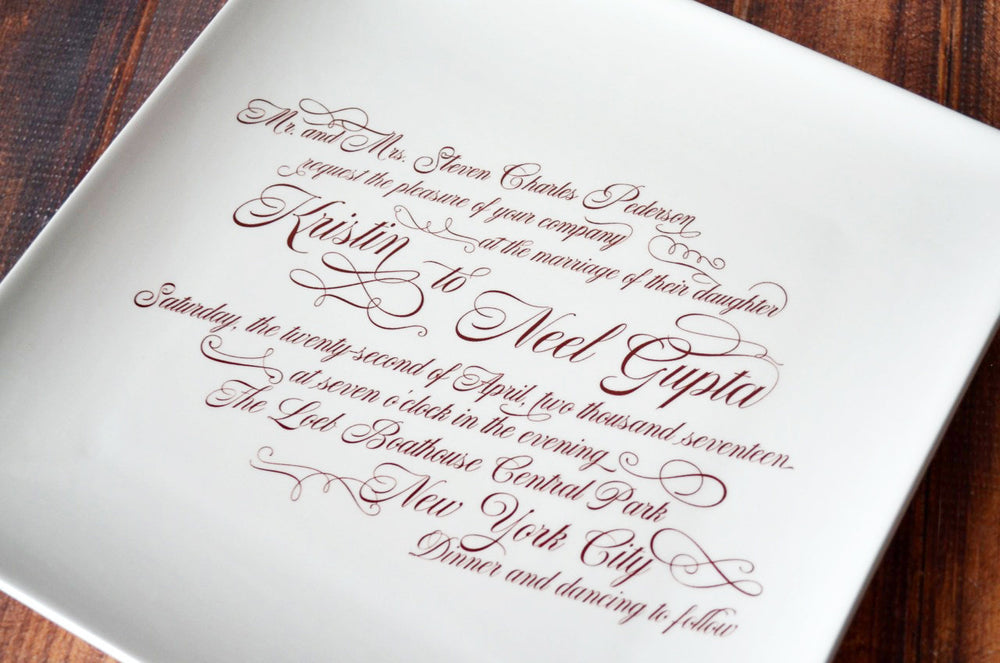 Mr. and Mrs. Steven Charles Pederson
request the pleasure of your company
at the marriage of their daughter
Kristin to Neel Gupta
Saturday, the twenty-second of April, two thousand seventeen
at seven o'clock in the evening
The Loeb Boathouse Central Park
New York City
Dinner and dancing to follow